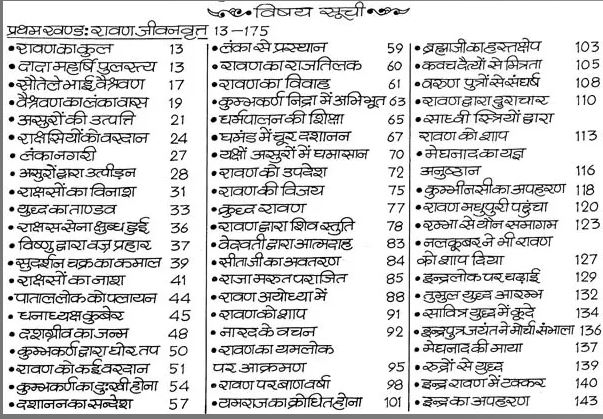 विषय सूची
प्रथम खण्ड: रावण जीवनवृत्त 13-175
• रावण का कुल 13
• दादा महर्षि पुलस्त्य 13
• सौतेले भाई वैश्रवण 17
• वैश्रवण का लंकावास 19
• असुरों की उत्पत्ति 21
• राक्षसियों को वरदान 24
• लंका नगरी 27
• असुरों द्वारा उत्पीड़न 28
• राक्षसों का विनाश 31
• युध्द का ताण्डव 33
• राक्षस सेना क्षुब्ध हुई 36
• विष्णु द्वारा वज्र प्रहार 37
• सुदर्शन चक्र का कमाल 39
• राक्षसों का नाश 41
• पाताल लोक को पलायन 44
• धनाध्यक्ष कुबेर 45
• दशग्रीव का जन्म 48
• कुम्भकर्ण द्वारा घोर तप 50
• रावण को कई वरदान 51
• कुम्भकर्ण का दुःखी होना 54
• दशानन का सन्देश 57
• लंका से प्रस्थान 59
• रावण का राजतिलक 60
• रावण का विवाह 61
• कुम्भकर्ण निद्रा में अभिभूत 63
• धर्मपालन की शिक्षा 65
• घमंड में चूर दशानन 67
• यक्षों असुरों में घमासान 70
• रावण को उपदेश 72
• रावण की विजय 75
• क्रुध्द रावण 77
• रावण द्वारा शिव स्तुति 78
• वेदवती द्वारा आत्मदाह 83
• सीताजी का अवतरण 84
• राजा मरुत पराजित 85
• रावण अयोध्या में 88
• रावण को शाप 91
• नारद के वचन 92
• रावण का यमलोक
पर आक्रमण 95
• रावण पर बाण वर्षा 98
• यमराज का क्रोधित होना 101
• ब्रह्माजी का हस्तक्षेप 103
• कवच दैत्यों से मित्रता 105
• वरुण पुत्रों से संघर्ष 108
• रावण द्वारा दुराचार 110
• साध्वी स्त्रियों द्वारा
रावण को शाप 113
• मेघनाद का यज्ञ
अनुष्ठान 116
• कुम्भीनसी का अपहरण 118
• रावण मधुपुरी पहुंचा 120
• रम्भा से यौन समागम 123
• नलकूबर ने भी रावण
को शाप दिया 127
• इन्द्रलोक पर चढ़ाई 129
• तुमुल युध्द आरम्भ 132
• सावित्र युध्द में कूदे 134
• इन्द्रपुत्र जयंत ने मोर्चा संभाला 136
• मेघनाद की माया 137
• रुद्रों से युध्द 139
• इन्द्र रावण में टक्कर 140
• इन्द्र का अपहरण 143